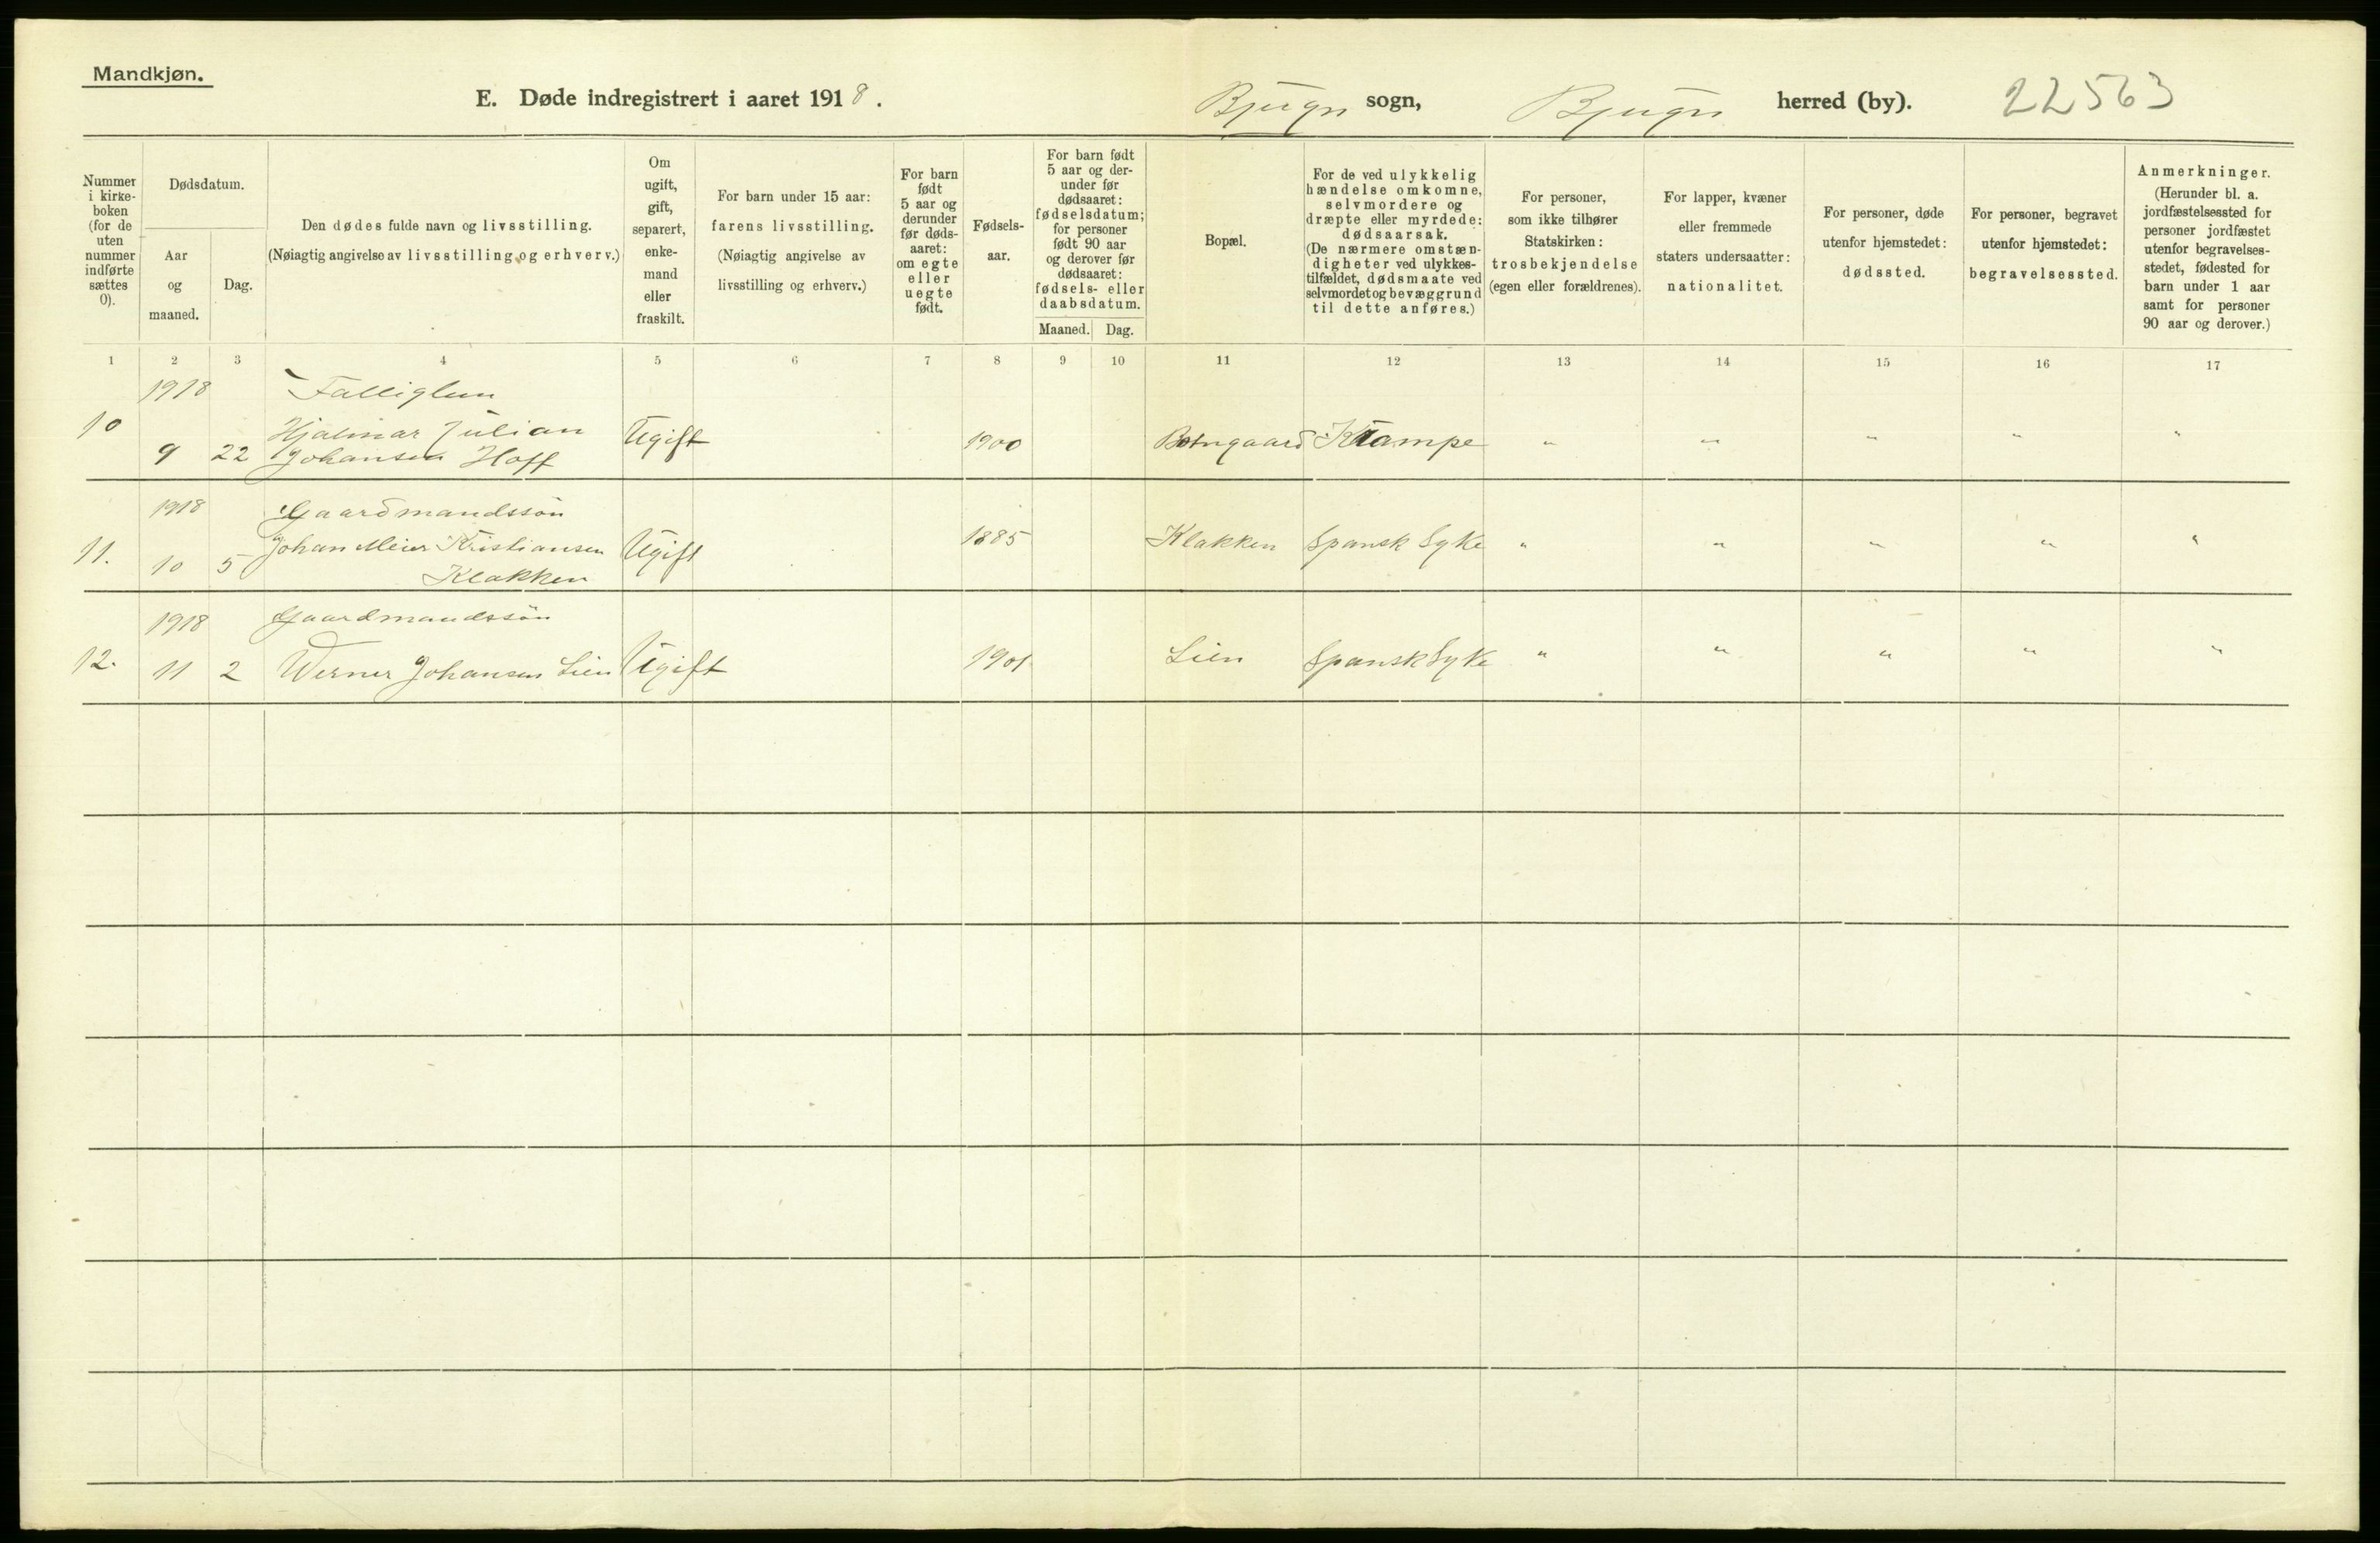 Mandkjøn.
E. Døde indregistrert i aaret 1918.
Bjugn sogn, Bjugn herred (by). 22563
Nummer
i kirke-
boken
(for de
uten
nummer
indførte
sættes
0).
Dødsdatum.
Aar
og
maaned.
Dag.
Den dødes fulde navn og livsstilling.
(Nøiagtig angivelse av livsstilling og erhverv.)
Om
ugift,
gift,
separert,
enke-
mand
eller
fraskilt.
For barn under 15 aar:
farens livsstilling.
(Nøiagtig angivelse av
livsstilling og erhverv.)
For barn
født
5 aar og
derunder
før døds-
aaret:
om egte
eller
uegte
født.
Fødsels-
aar.
For barn født
5 aar og der-
under før
dødsaaret:
fødselsdatum;
for personer
født 90 aar
og derover før
dødsaaret:
fødsels- eller
daabsdatum.
Maaned. Dag.
Bopæl.
For de ved ulykkelig
hændelse omkomne,
selvmordere og
dræpte eller myrdede:
dødsaarsak.
(De nærmere omstæn-
digheter ved ulykkes-
tilfældet, dødsmaate ved
selvmordet og bevæggrund
til dette anføres.)
For personer,
som ikke tilhører
Statskirken:
trosbekjendelse
(egen eller forældrenes).
For lapper, kvæner
eller fremmede
staters undersaatter:
nationalitet.
For personer, døde
utenfor hjemstedet:
dødssted.
For personer, begravet
utenfor hjemstedet:
begravelsessted.
Anmerkninger.
(Herunder bl. a.
jordfæstelsessted for
personer jordfæstet
utenfor begravelses-
stedet, fødested for
barn under 1 aar
samt for personer
90 aar og derover.)
1 2 3 4 5 6 7 8 9 10 11 12 13 14 15 16 17
1918
10 9 22 Hjalmar Julian Ugift 1900 Botngaard Krampe " " " " "
Johansen Hoff
1918 Gaardmandssön
11. 10 5 Johan Meier Kristiansen Ugift 1885 Klakken Spansk Syke " " " " "
Klakken
1918 Gaardmandssön
12. 11 2 Werner Johansen Lien Ugift 1901 Lien Spansk Syke " " " " "